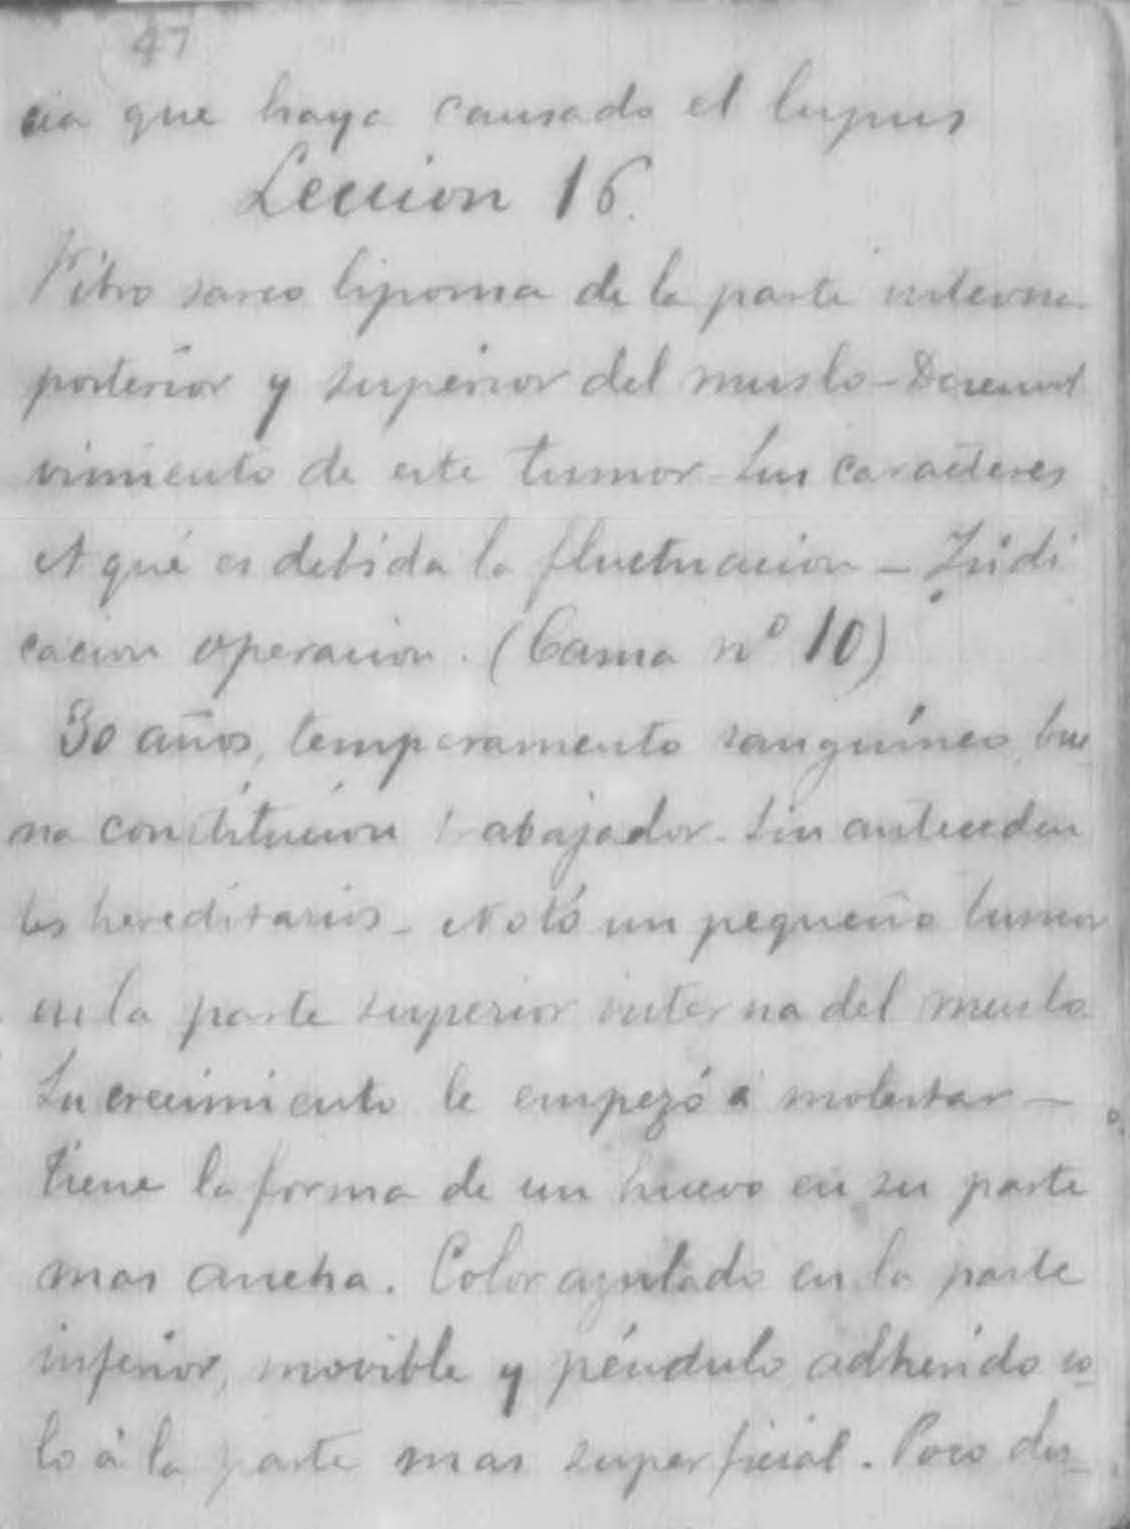 47
cia que haya causado el lupus
Leccion 16.
Fibro sarco lipoma de la parte interna
posterior y superior del muslo - Desenvol
vimiento de este tumor - Sus caracteres
A qué es debida la fluctuacion - Indi
cacion operacion. (Cama nº 10)
30 años, temperamento sanguíneo, bue
na constitucion trabajador - Sin anteceden
tes hereditarios - Notó un pequeño tumor
en la parte superior interna del muslo
Su crecimiento le empezó á molestar -
Tiene la forma de un huevo en su parte
mas ancha. Color azulado en la parte
inferior, movible y péndulo adherido so
lo á la parte mas superficial. Poco